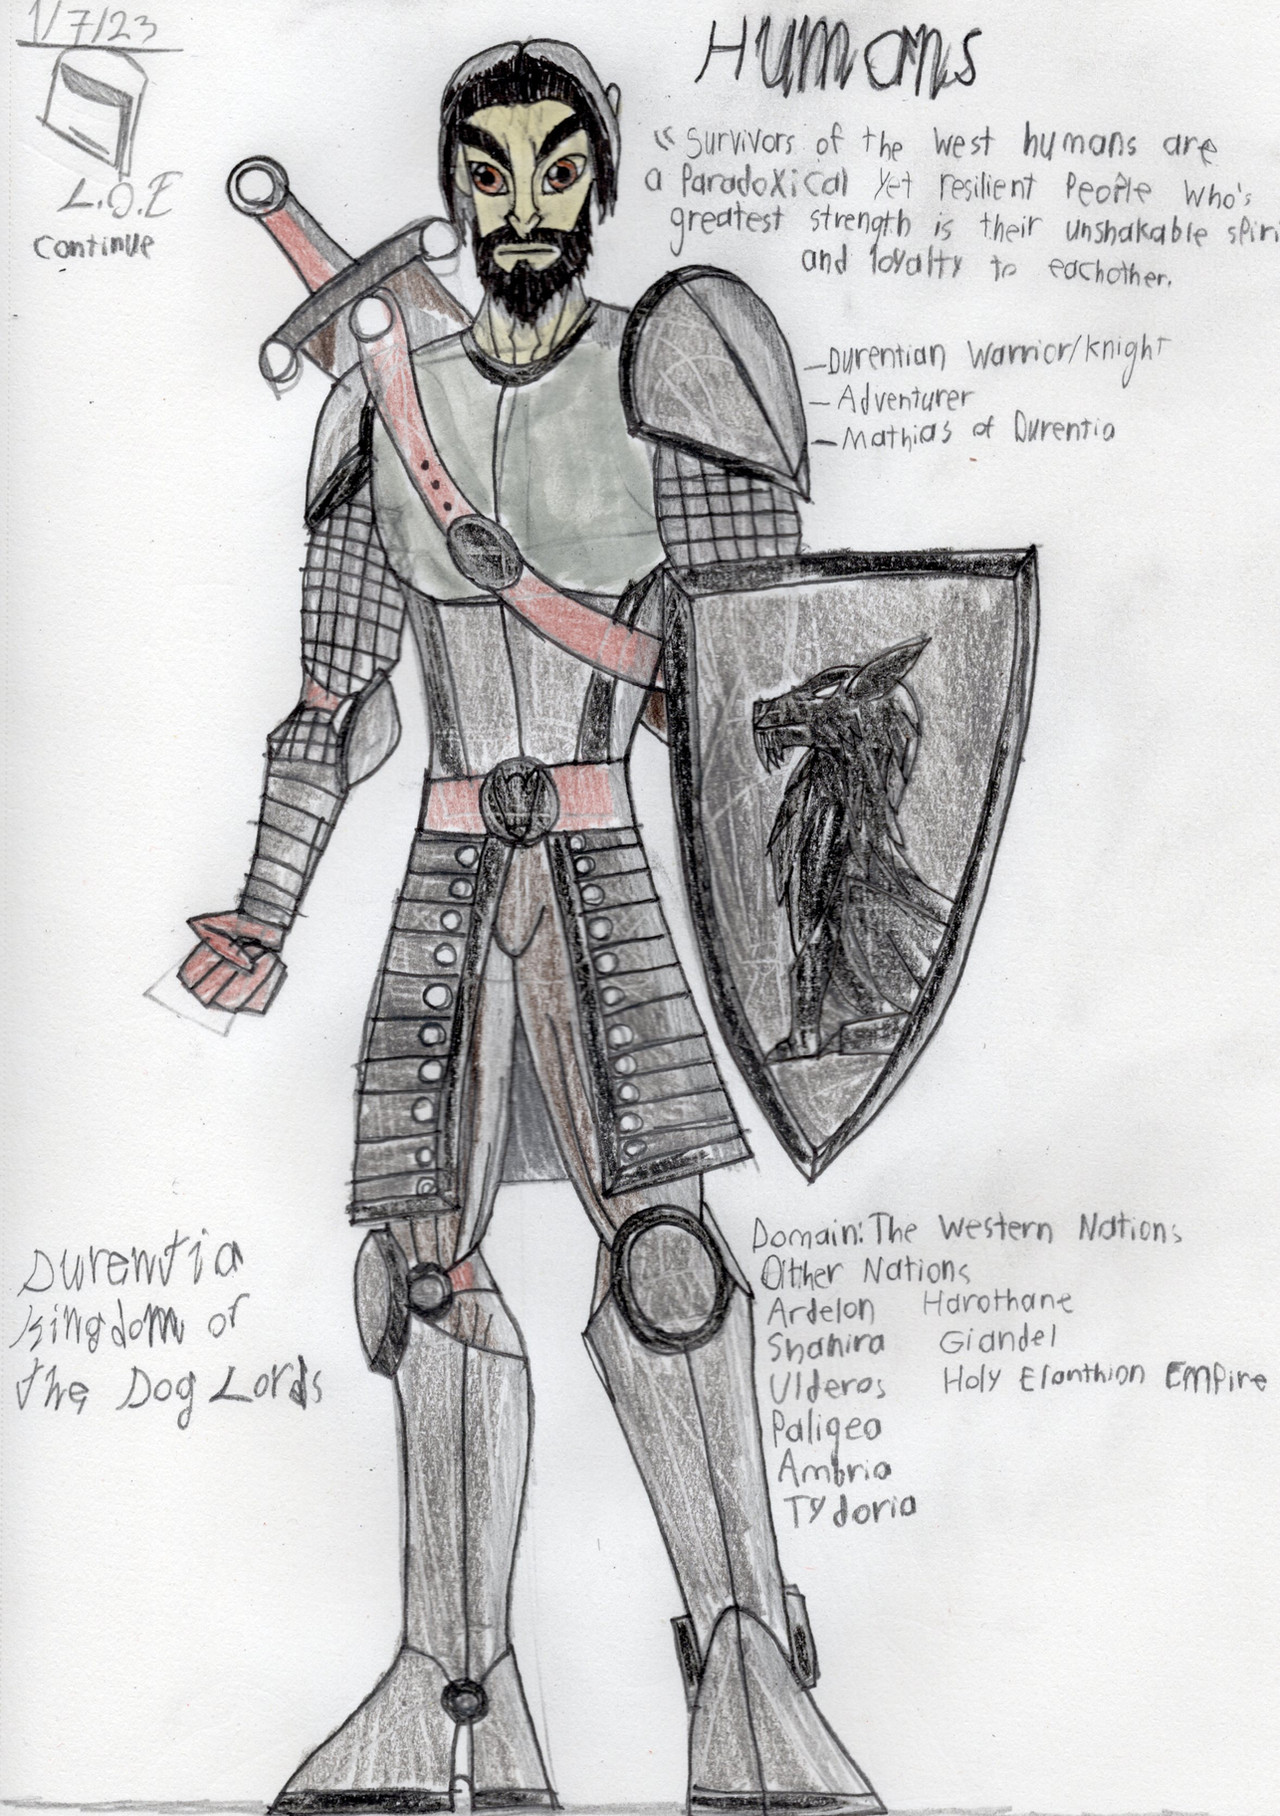 1/7/23
L.O.E
continue
Humans
"Survivors of the West humans are
a Paradoxical yet resilient People Who's
greatest strength is their unshakable spiri
and loyalty to eachother.
-Durentian Warrior/Knight
- Adventurer
-Mathias of Durentia
Durentia
Kingdom of
the Dog Lords
Domain: The Western Nations
Oither Nations
Ardelon Harothane
Shahira Giandel
Ulderos Holy Elanthion Empire
Paligea
Ambria
Tydoria